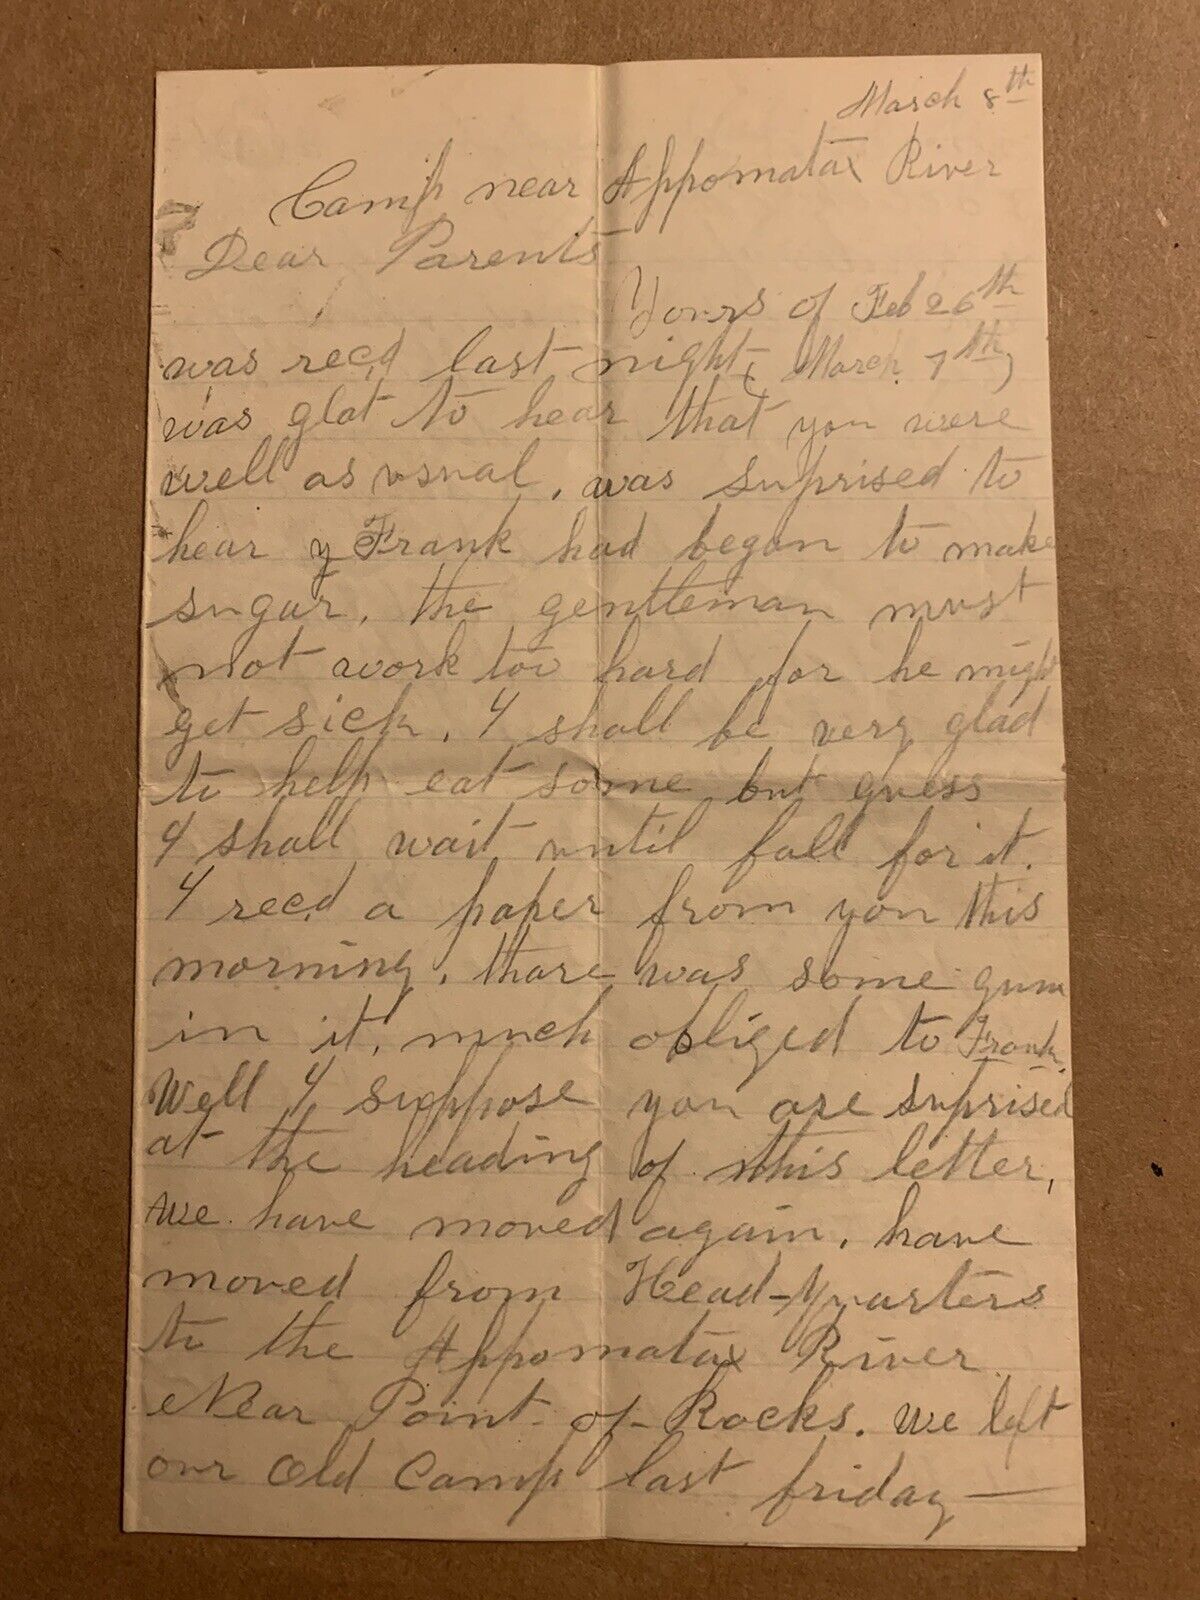 March 8th
Camp near Appomatax River
Dear Parents
Yours of Feb 26th
was recd last night, (March 7th)
was glat to hear that you were
well as usual, was suprised to
hear y Frank had began to make
sugar, the gentleman must
not work too hard for he might
get sick, I shall be very glad
to help eat some but guess
I shall wait until fall for it.
I recd a paper from you this
morning, thare was some gum
in it, much obliged to Frank.
Well I suppose you are suprised
at the heading of this letter,
we have moved again, have
moved from Head-Quarters
to the Appomatax River
Near Point-of-Rocks. We left
our Old Camp last friday—